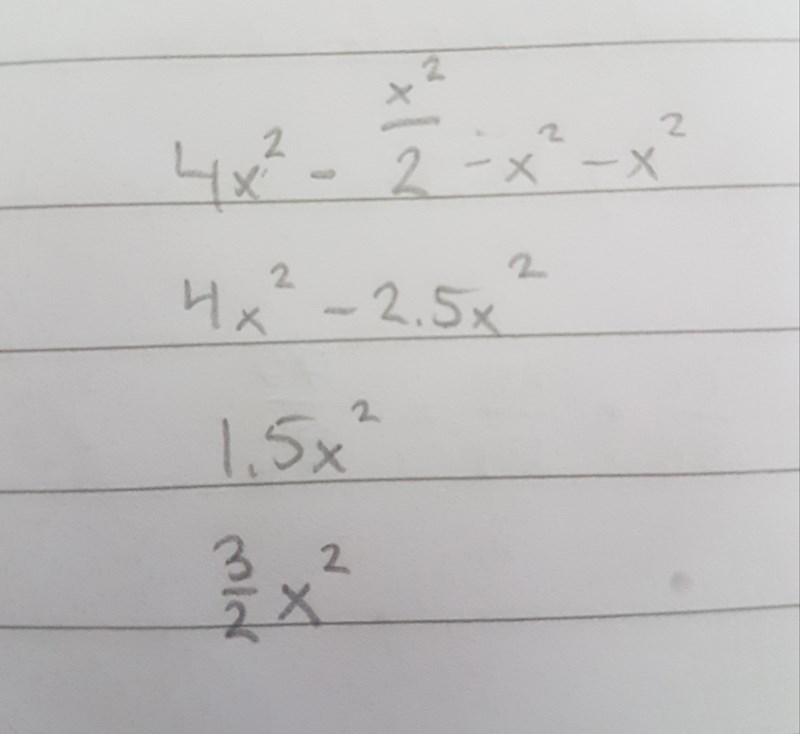 4x² - x²/2 - x² - x²
4x² - 2.5x²
1.5x²
3/2 x²